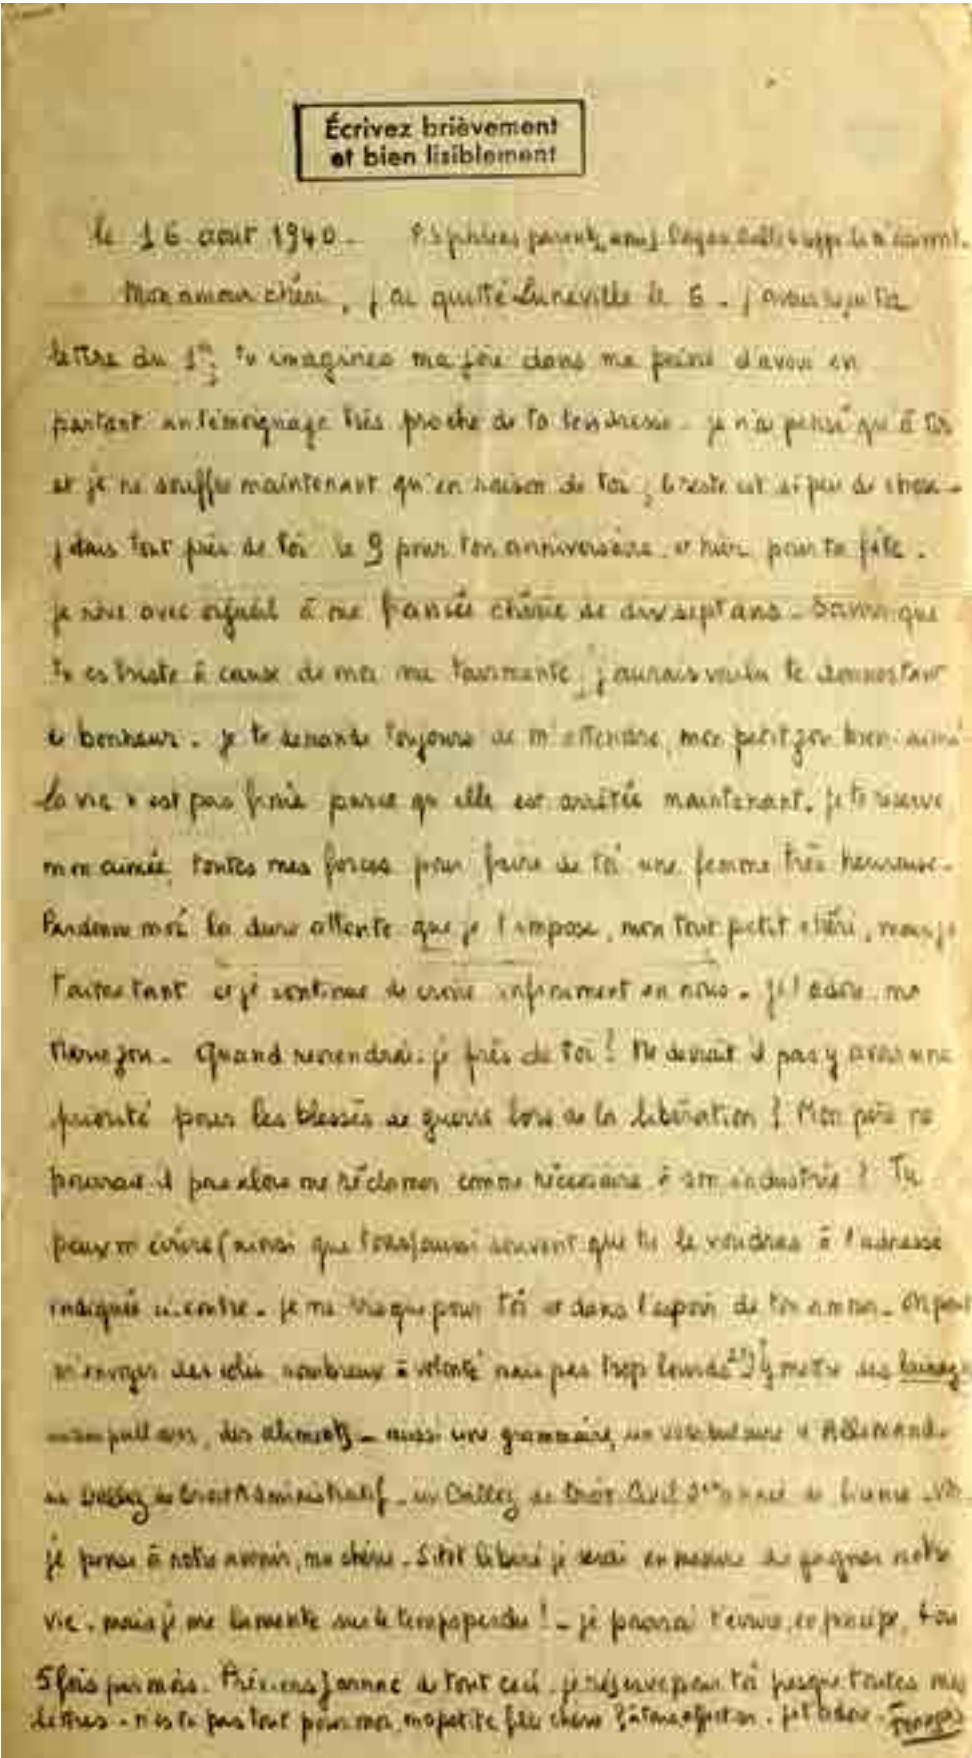 Écrivez brièvement
et bien lisiblement
le 16 aout 1940 - P.S.
Mon amour chéri, j'ai quitté Lunéville le 6 - j'avais reçu ta
lettre du 1er; tu imagines ma joie dans ma peine d'avoir en
partant un témoignage très proche de ta tendresse - je n'ai pensé qu'à toi
et je ne souffre maintenant qu'en raison de toi; le reste est si peu de chose -
j'étais tout près de toi le 9 pour ton anniversaire et hier pour ta fête.
je rêve avec orgueil à ma fiancée chérie de dix sept ans - Savoir que
tu es triste à cause de moi me tourmente; j'aurais voulu te donner tant
de bonheur. je te demande toujours de m'attendre, mon petit zon bien aimé
La vie n'est pas finie parce qu'elle est arrêtée maintenant. je te réserve
mon aimée, toutes mes forces pour faire de toi une femme très heureuse -
Pardonne moi la dure attente que je t'impose, mon tout petit chéri, mais je
t'aime tant et je continue de croire infiniment en nous. je t'adore, ma
- Quand reviendrai-je près de toi? Ne devrait il pas y avoir une
priorité pour les blessés de guerre lors de la libération? Mon père ne
pourrait il pas alors me réclamer comme nécessaire à son industrie? Tu
peux m'écrire (ainsi que tous) aussi souvent que tu le voudras à l'adresse
indiquée ci-contre - je ne vis que pour toi et dans l'espoir de ton amour - On peut
m'envoyer des colis nombreux à volonté mais pas trop lourds y mettre des lainages
des aliments - aussi une grammaire, un vocabulaire d'Allemand -
un Dalloz de Droit Administratif - un Dalloz de Droit Civil année de licence -
je pense à notre avenir, ma chérie - Sitôt libéré je serai en mesure de gagner notre
vie - mais je me lamente sur le temps perdu! - je pourrai t'écrire, en principe, 4 ou
5 fois par mois. Préviens Jeanne de tout ceci - je réserve pour toi presque toutes mes
lettres - n'es tu pas tout pour moi, ma petite fille chérie - je t'adore - François